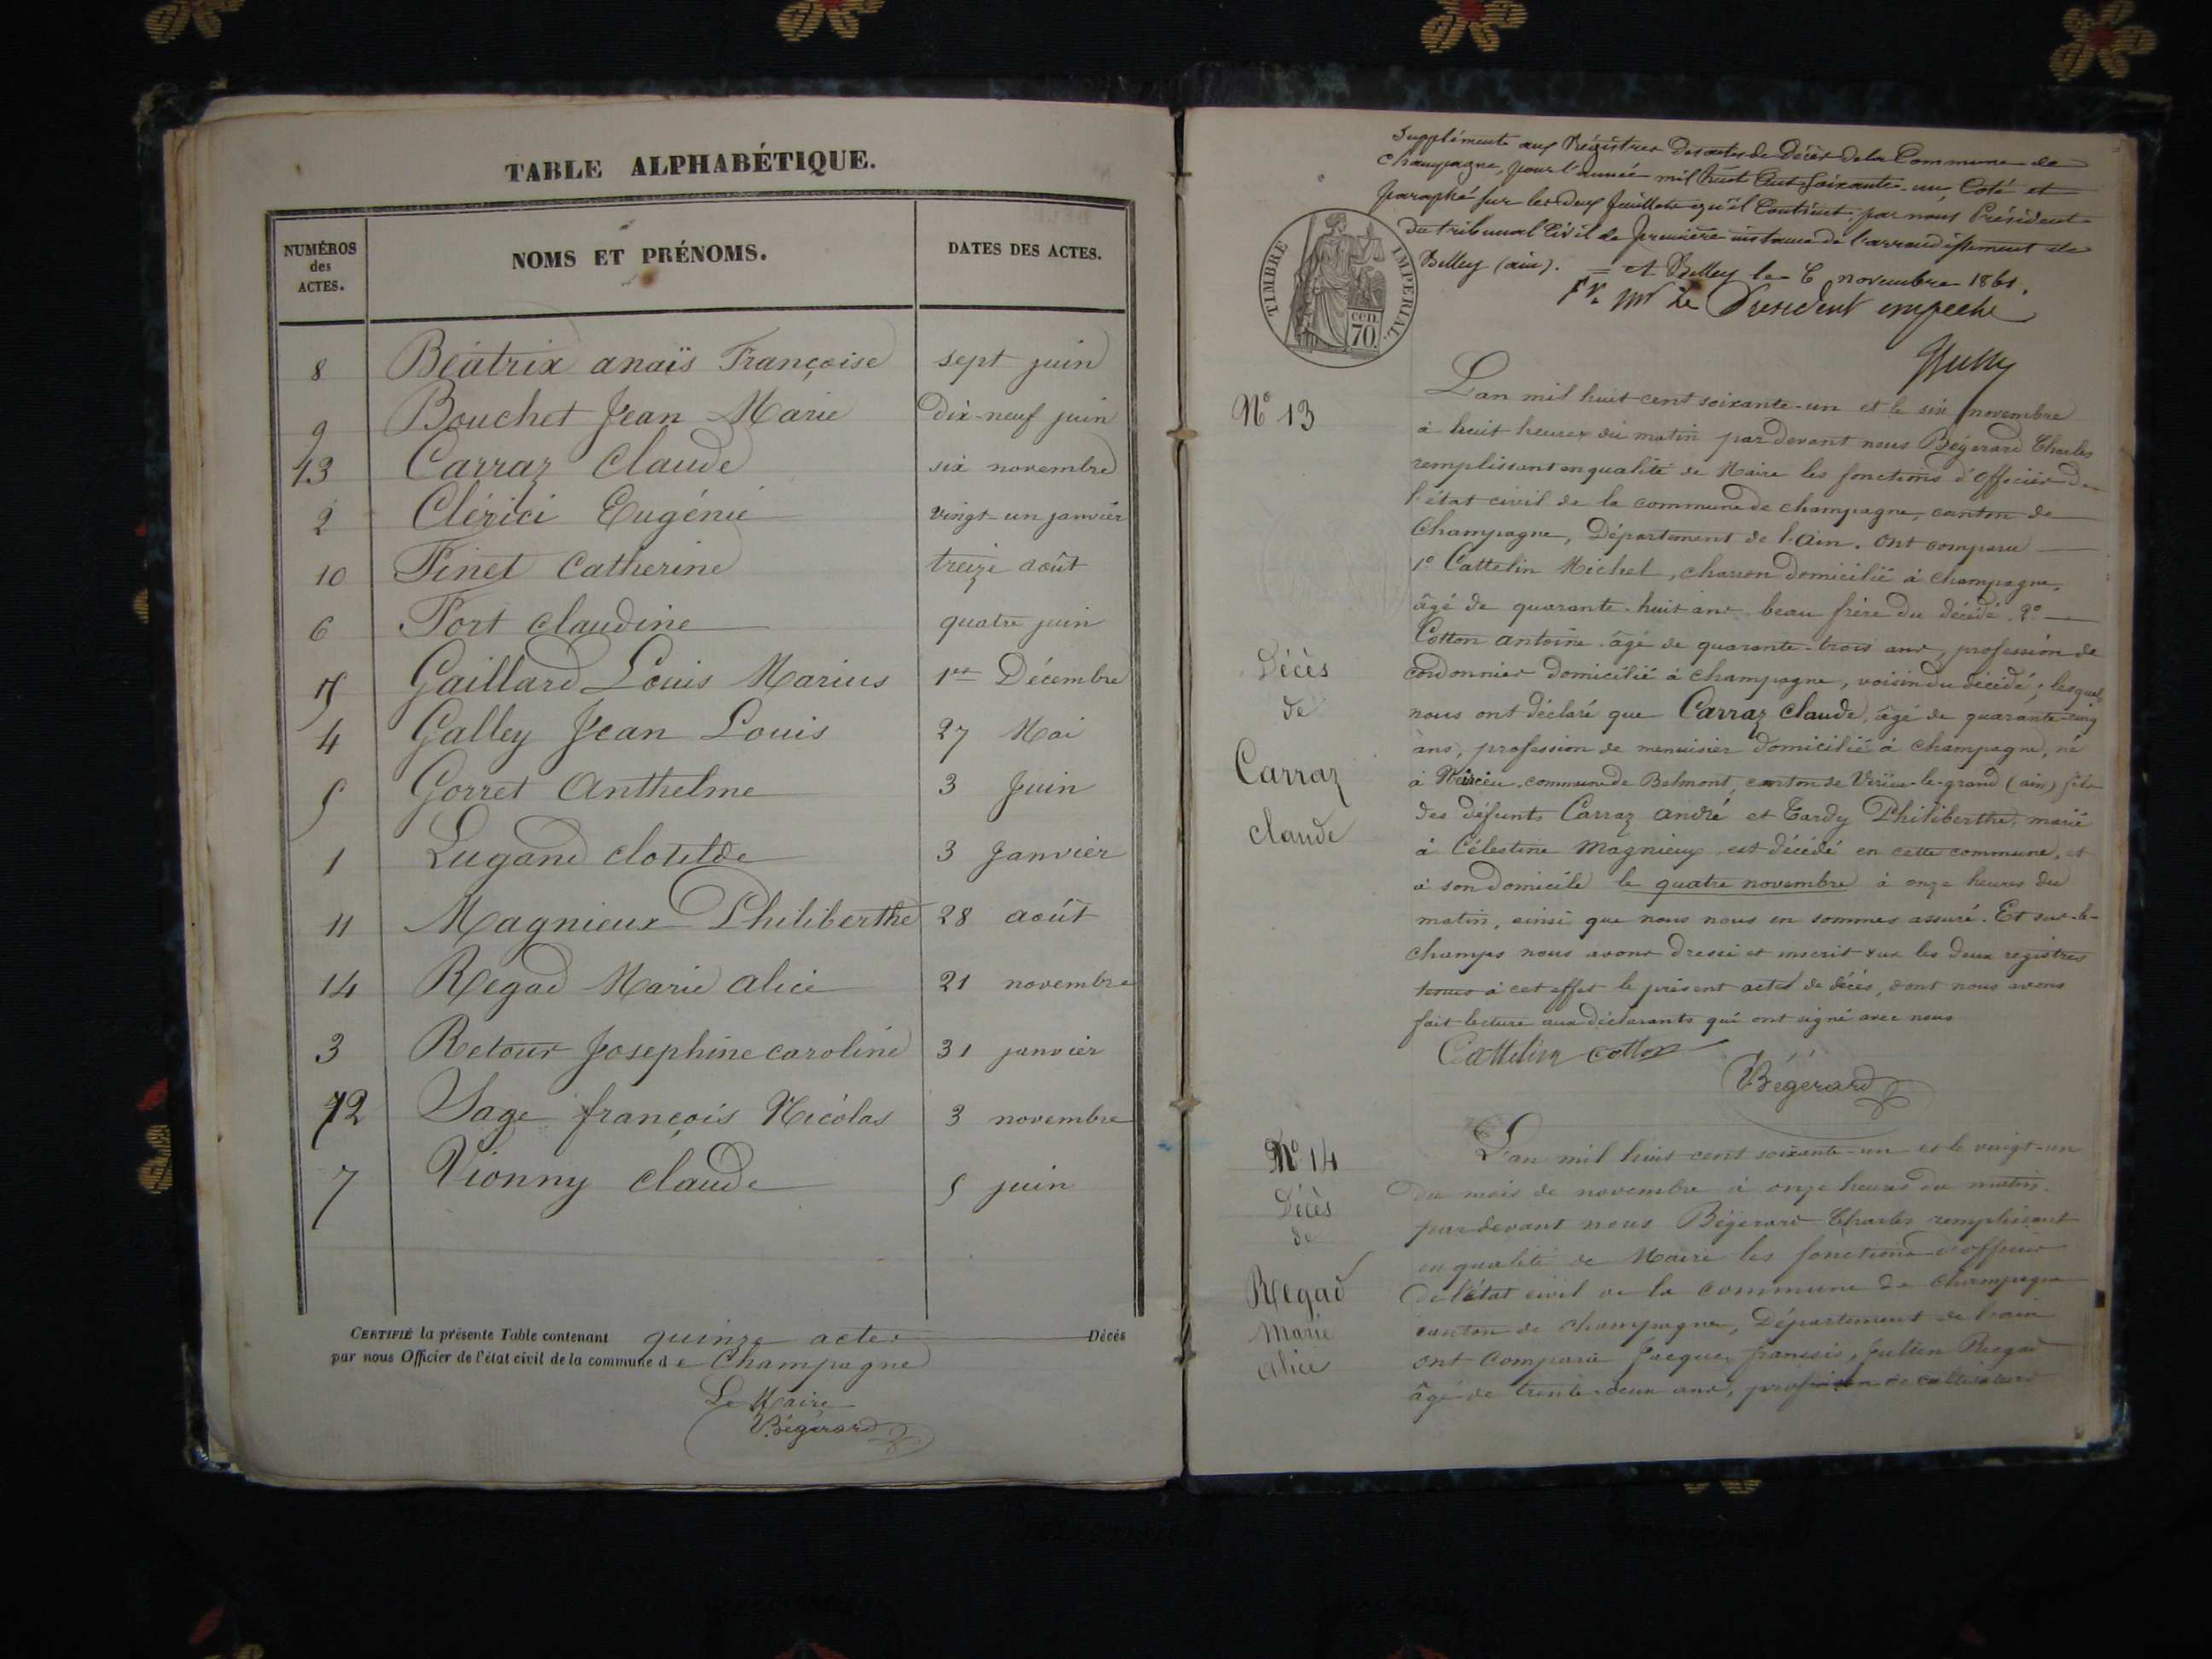 TABLE ALPHABÉTIQUE.
NUMÉROS des ACTES. NOMS ET PRÉNOMS. DATES DES ACTES.
8 Béatrix anaïs Françoise sept juin
9 Bouchet Jean Marie Dix-neuf juin
13 Carraz Claude six novembre
2 Clérici Eugénie vingt-un janvier
10 Finet Catherine treize août
6 Fort claudine quatre juin
15 Gaillard Louis Marius 1er Décembre
4 Galley Jean Louis 27 Mai
5 Gorret Anthelme 3 Juin
1 Lugand clotilde 3 Janvier
11 Magnieux Philiberthe 28 août
14 Regad Marie alice 21 novembre
3 Retour Josephine caroline 31 janvier
12 Sage françois Nicolas 3 novembre
7 Vionny claude 5 juin
CERTIFIÉ la présente Table contenant quinze actes Décès
par nous Officier de l'état civil de la commune de Champagne
Le Maire
Bégérard
Supplémente aux Régistres des actes de Décès de la Commune de
Champagne, pour l'année mil huit cent soixante-un Coté et
paraphé sur les deux feuillets qu'il Contient, par nous Président
du tribunal Civil de première instance de l'arrondissement de
Belley (ain). = A Belley le 6 novembre 1861.
Pr. Mr Le President empeché
TIMBRE IMPERIAL
cen. 70.
N° 13
Décès
de
Carraz
claude
L'an mil huit cent soixante-un et le six novembre
à huit heures du matin par devant nous Bégerard Charles
remplissant en qualité de Maire les fonctions d'Officier de
l'état civil de la commune de champagne, canton de
Champagne, Département de l'Ain. Ont comparu
1° Cattelin Michel, charron domicilié à champagne,
âgé de quarante-huit ans beau frère du décédé. 2°
Cotton antoine âgé de quarante-trois ans, profession de
cordonnier domicilié à champagne, voisin du décédé; lesquels
nous ont déclaré que Carraz Claude, âgé de quarante-cinq
ans, profession de menuisier domicilié à champagne, né
à commune de Belmont, canton de Virieu-le-grand (ain) fils
des défunts Carraz andré et Tardy Philiberthe, marié
à Célestine Magnieux est décédé en cette commune, et
à son domicile le quatre novembre à onze heures du
matin, ainsi que nous nous en sommes assuré. Et sur-le-
champs nous avons dressé et inscrit sur les deux registres
tenus à cet effet le présent acte de décès, dont nous avons
fait lecture aux déclarants qui ont signé avec nous
Cattelin cotton
Bégérard
N° 14
Décès
de
Regad
Marie
alice
L'an mil huit cent soixante-un et le vingt-un
du mois de novembre à onze heures du matin.
par devant nous Bégerard Charles remplissant
en qualité de Maire les fonctions d'officier
de l'état civil de la commune de champagne
canton de champagne, Département de l'ain
ont comparu Jacques françois, Julien Regad
âgé de trente-deux ans, profession de cultivateur